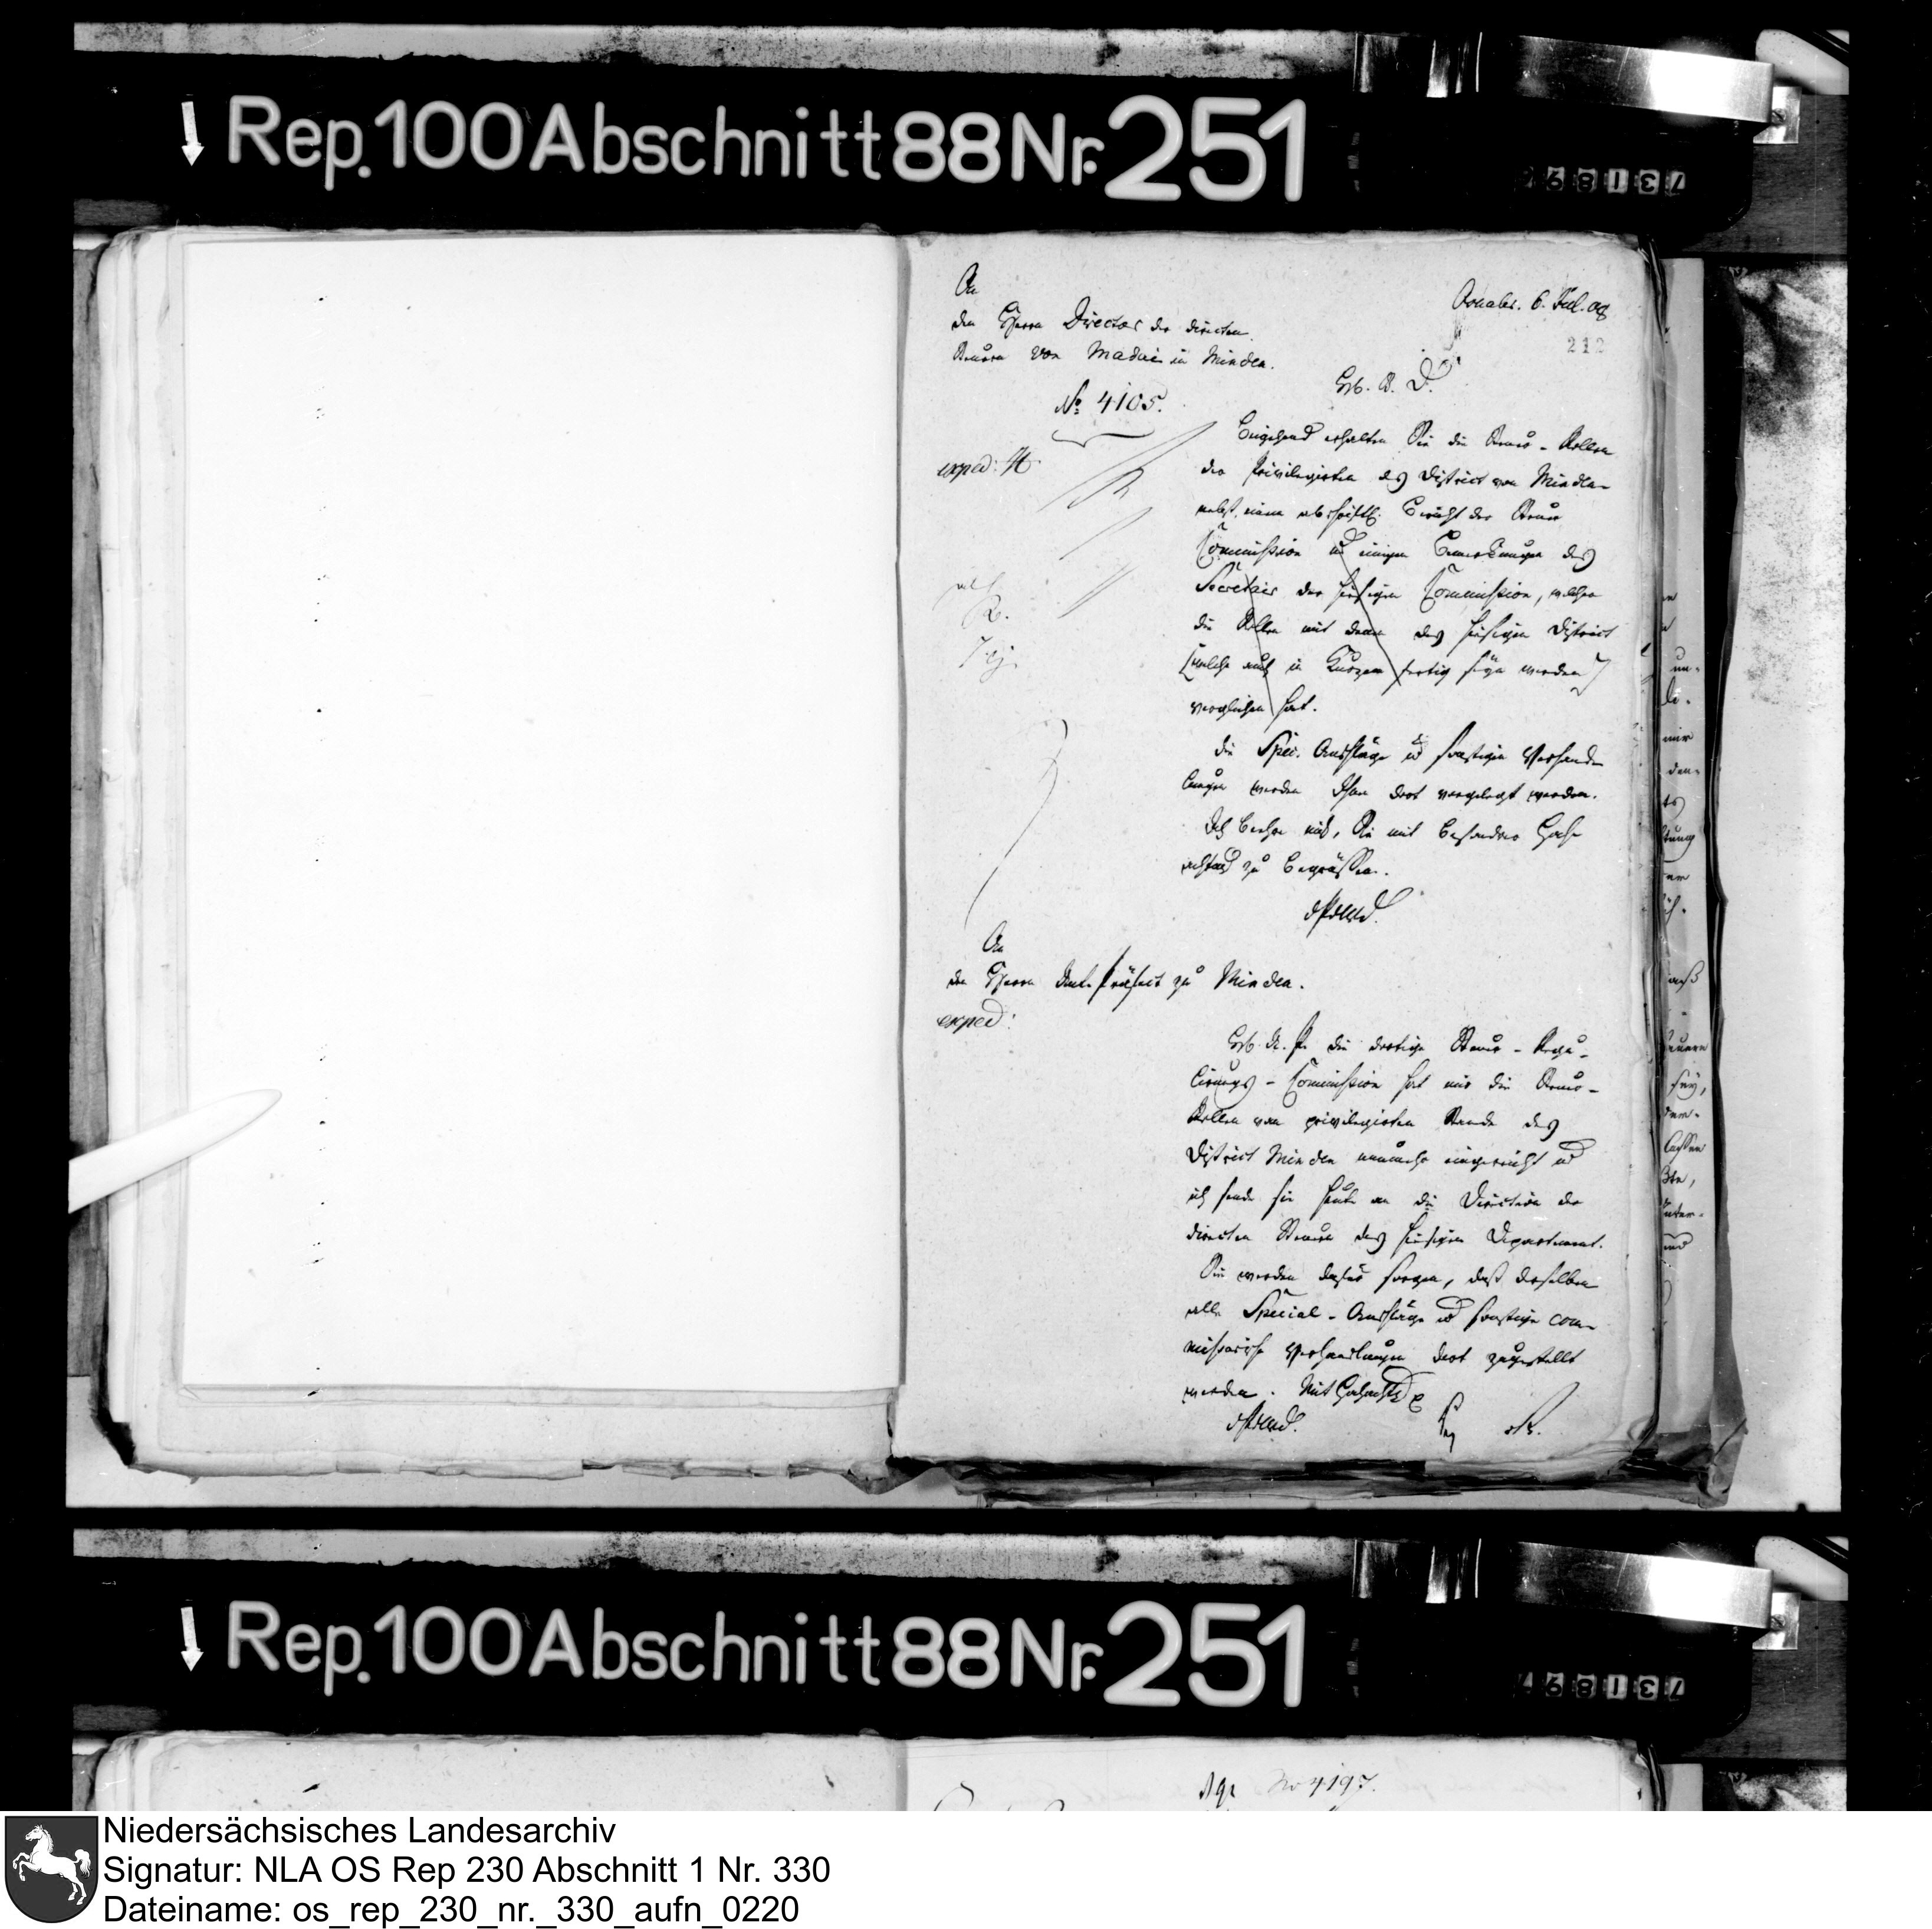 Rep. 100 Abschnitt 88 Nr. 251
731896
An
den Herrn Director der directen
Steuern von Madai in Minden.
Osnabr. 6. Jul. 08
212
No 4105.
exped:
Beigehend erhalten Sie die Steuer-Rollen
der Privilegirten des District von Minden
nebst einem abschriftl. Bericht der Steuer
Commission und einigen Bemerkungen des
Secretair der hiesigen Commission, welcher
die Rollen mit denen des hiesigen District
[welche auch in Kurzem fertig seyn werden]
verglichen hat.
Die Spec. Anschläge und sonstigen Verhand
lungen werden Ihnen dort vorgelegt werden.
Ich beehre mich, Sie mit besonderer Hoch
achtung zu begrüssen.
An
den Herrn Unt. Präfect zu Minden.
exped:
die dortige Steuer-Regu-
lirungs-Commission hat mir die Steuer-
Rollen vom privilegirten Stande des
District Minden nunmehr eingereicht und
ich sende sie heute an die Direction der
directen Steuern des hiesigen Departement.
Sie werden dafür sorgen, daß derselben
alle Special-Anschläge und sonstige com-
missarische Verhandlungen dort zugestellt
werden. Mit Hochachtg
Rep. 100 Abschnitt 88 Nr. 251
731897
No 4197.
Niedersächsisches Landesarchiv
Signatur: NLA OS Rep 230 Abschnitt 1 Nr. 330
Dateiname: os_rep_230_nr._330_aufn_0220